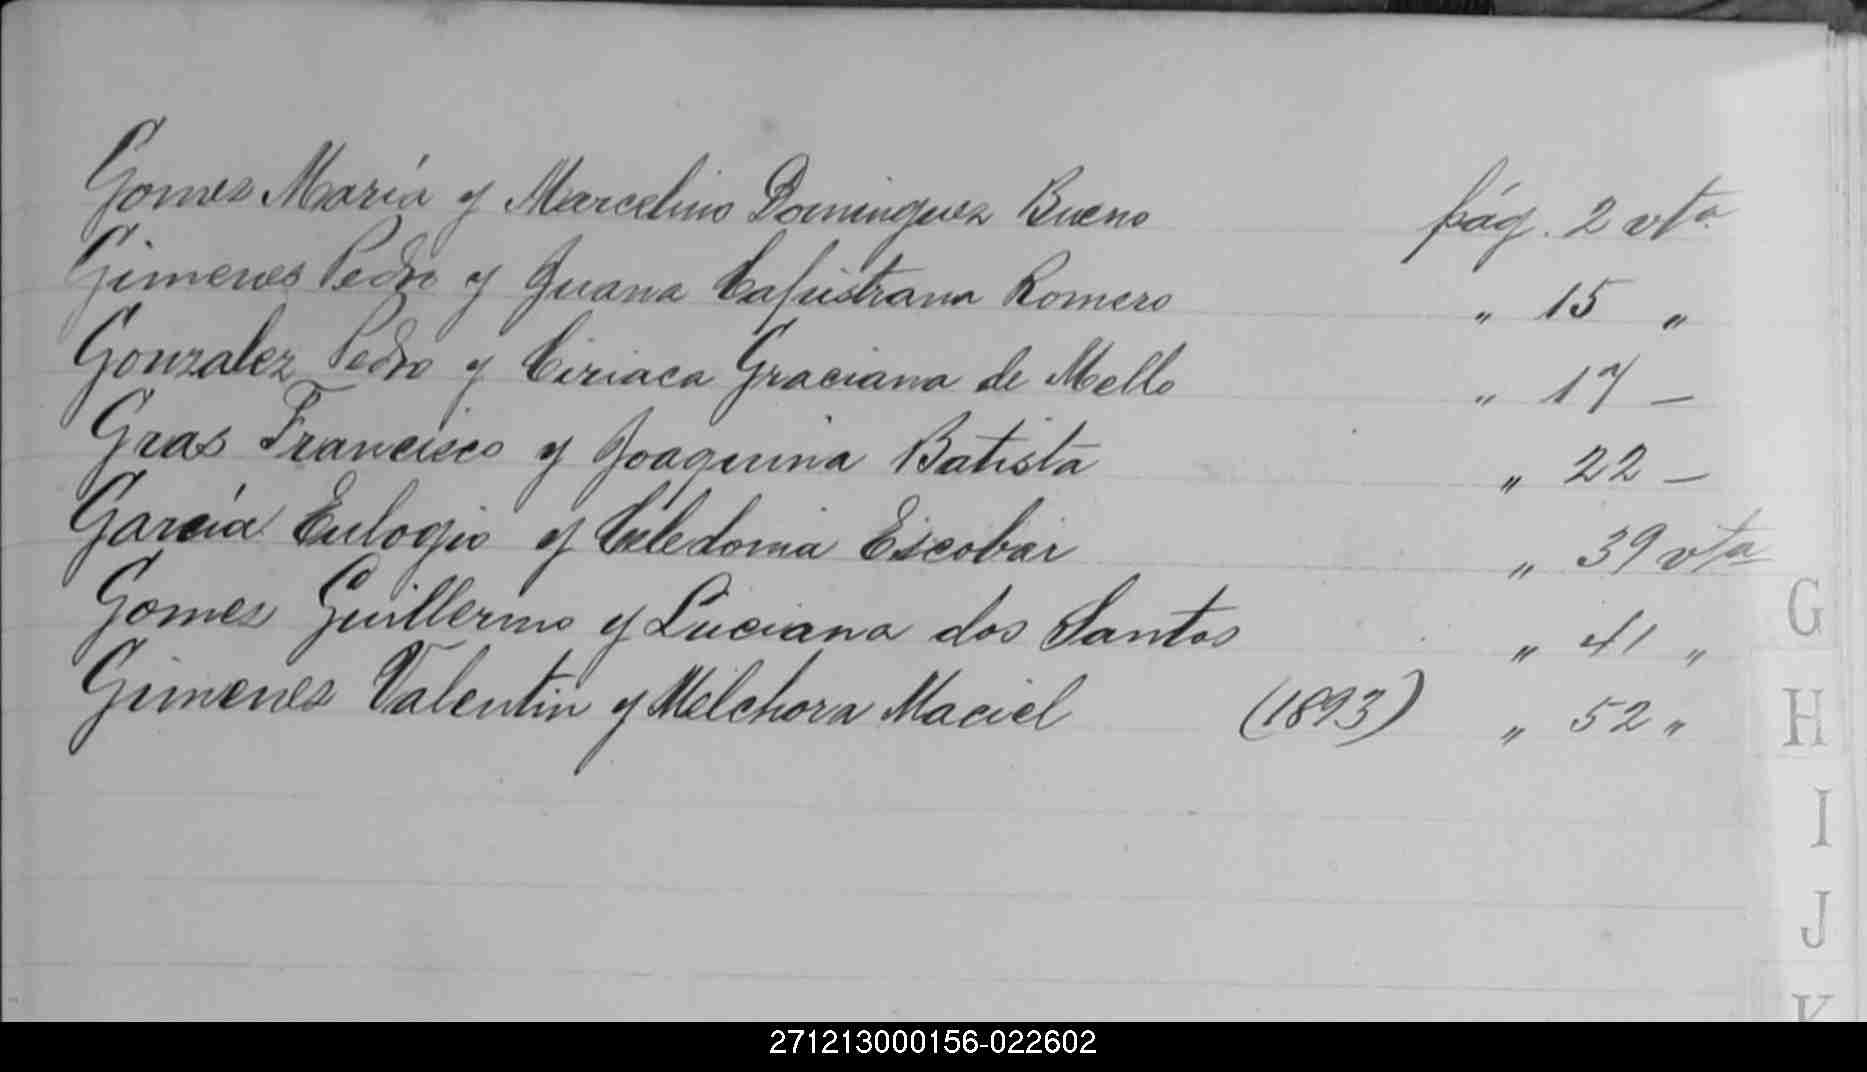 Gomes María y Marcelino Dominguez Bueno pág. 2 vta
Gimenes Pedro y Juana Capistrana Romero " 15 "
Gonzalez Pedro y Ciriaca Graciana de Mello " 17 —
Gras Francisco y Joaquina Batista " 22 —
García Eulogio y Celedonia Escobar " 39 vta
Gomes Guillermo y Luciana dos Santos " 41 "
Gimenes Valentin y Melchora Maciel (1893) " 52 "
G
H
I
J
K
271213000156-022602